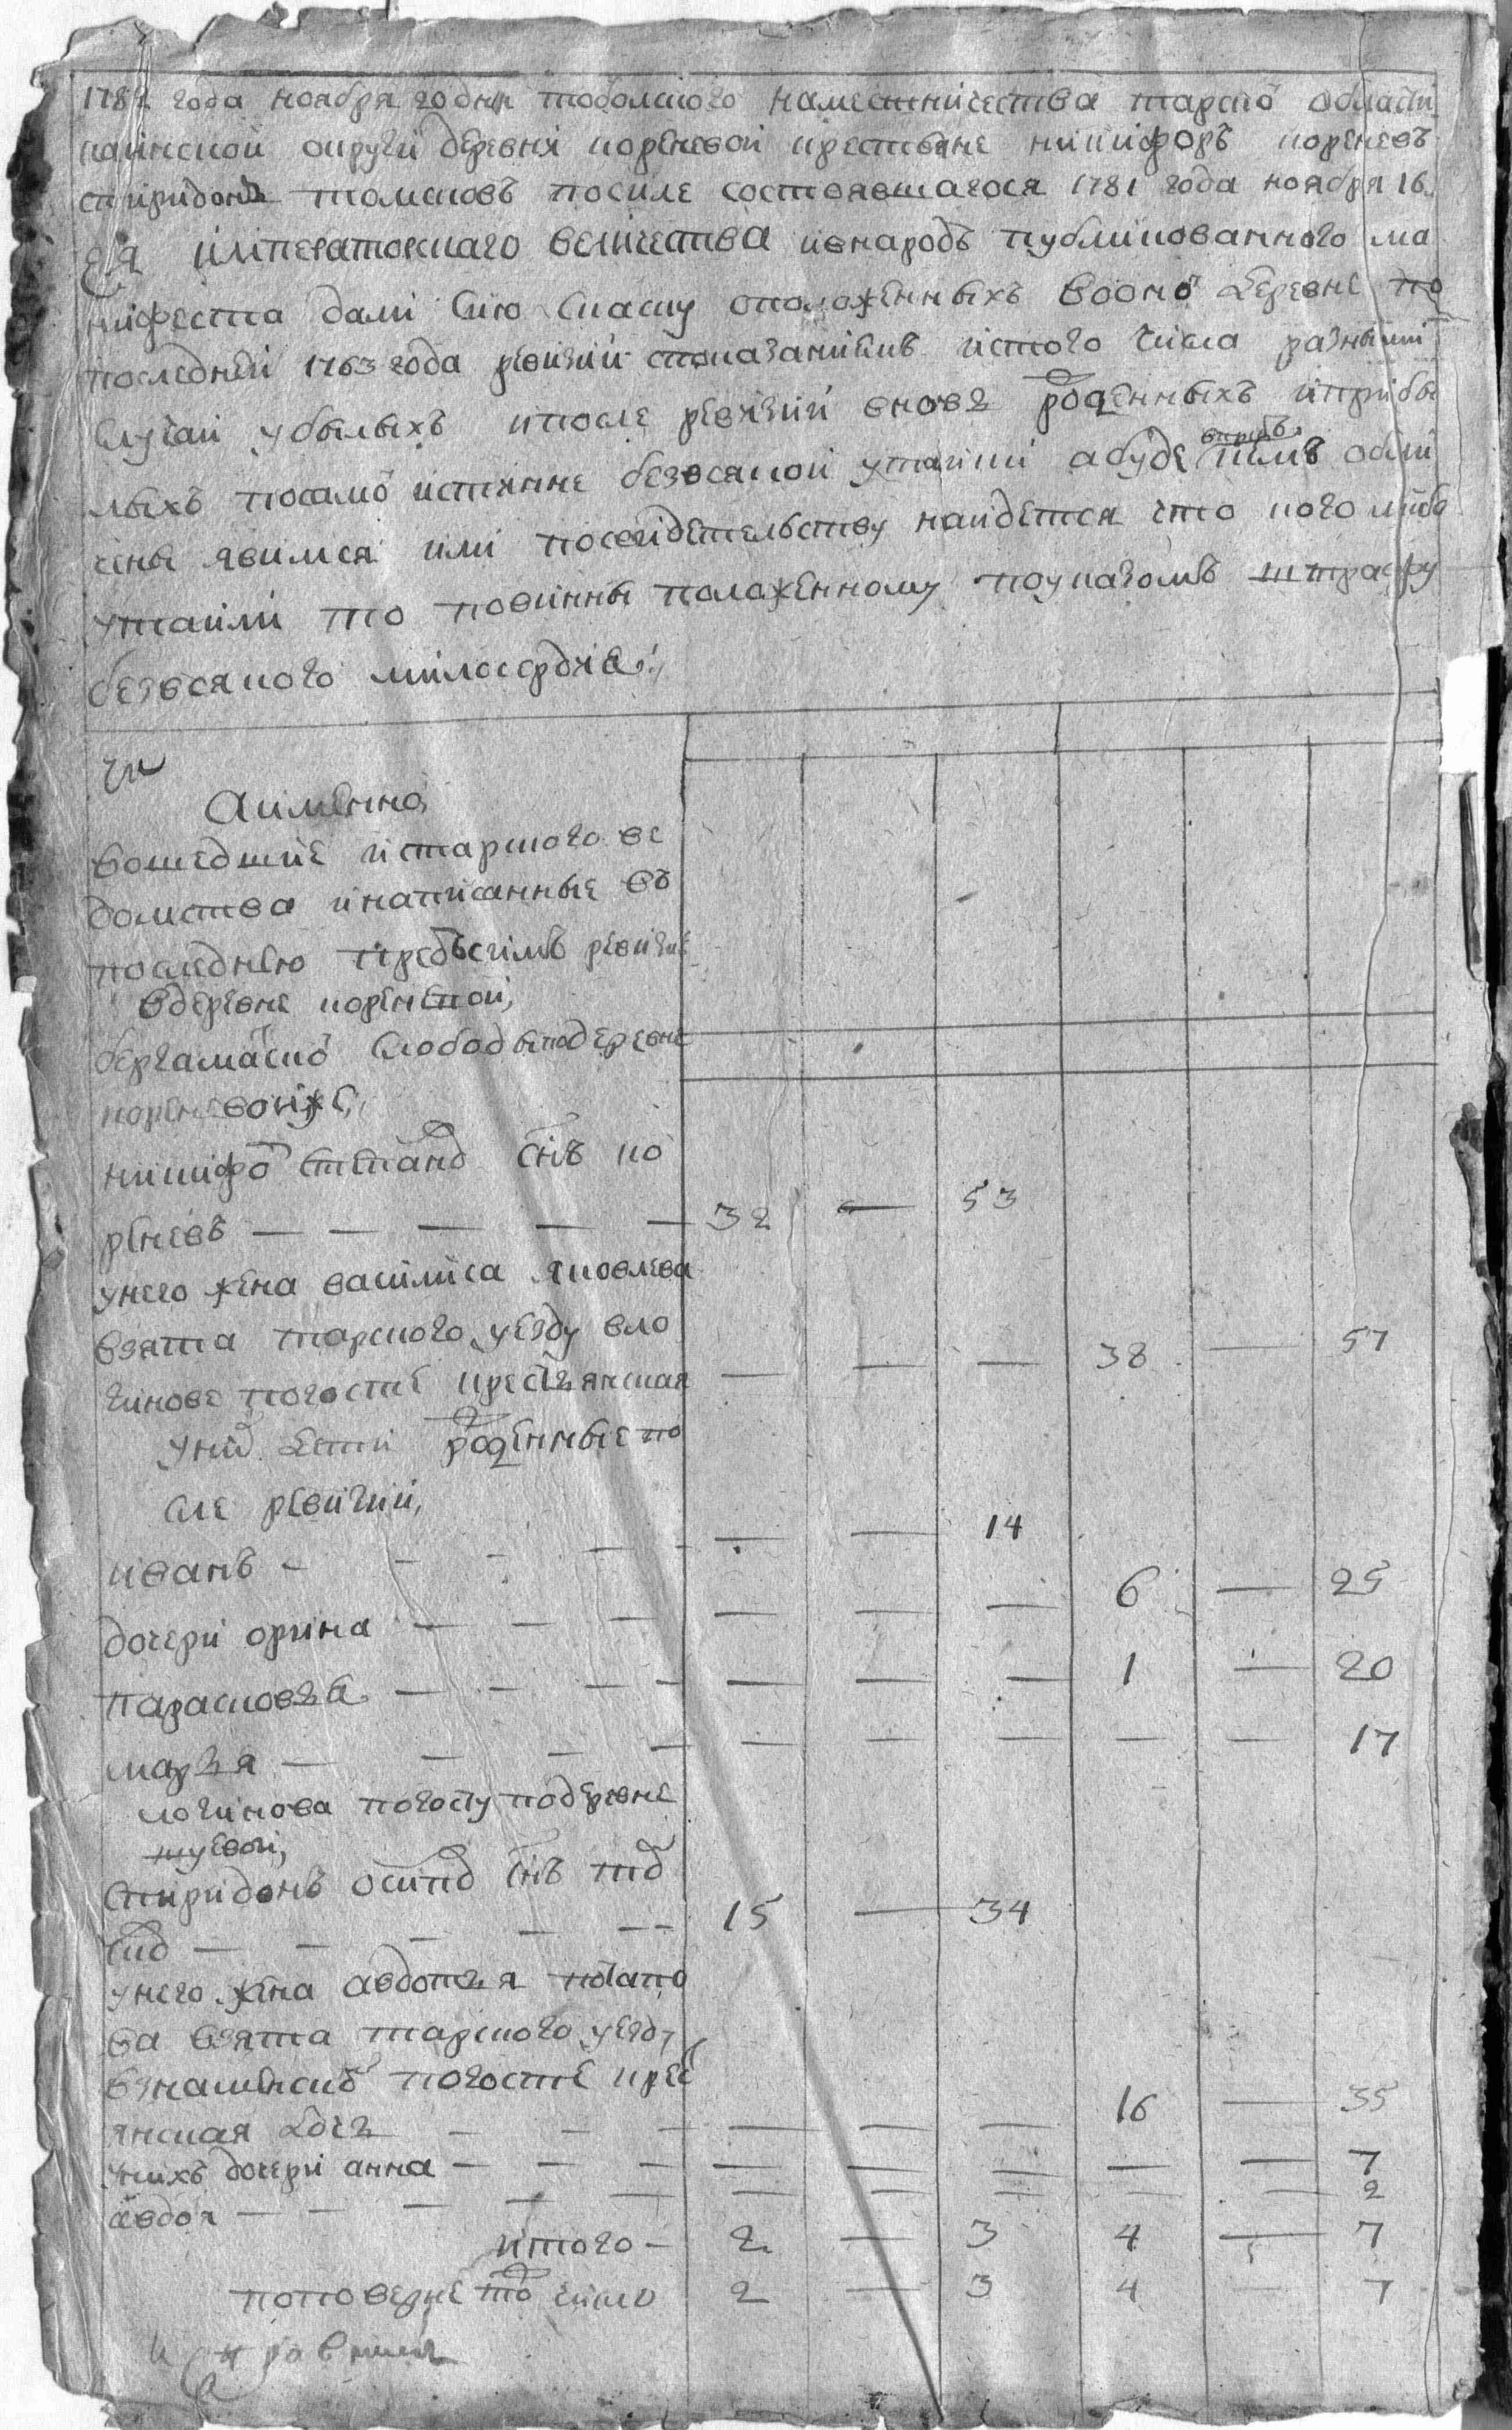 1782 года ноября 20 дня тоболского наместничества тарско области
каинской округи деревни кореневой крестьяне никифоръ кореневъ
спиридонъ томсковъ посиле состоявшагося 1781 года ноября 16.
ея императорскаго величества ивнародъ публикованного ма
нифеста дали сию скаску оположенныхъ вооно деревне по
последней 1763 года ревизии спаказаниемъ истого числа разными
случаи убылыхъ ипосле ревизии вновь рожденныхъ иприбы
лыхъ посамо истинне безовсякой утайки абуде вчемъ обли
чены явимся или посвидетельству найдется что кого либо
утаили то повинны положенному поуказомъ штрафу
безвсякого милосердия
Аимянно
вошедшие истарского ве
домства инаписанные въ
последнею предъсимъ ревизие
вдеревне кореневой
бергамацко слободы подеревне
кореневойже
никифо степано снъ ко
реневъ — — — — — 32 — 53
унего жена василиса яковлева
взята тарского уезду вло
гинове погосте крестьянская — — — 38 — 57
уних дети рожденные по
сле ревизии
иванъ — — — — — — 14
дочери орина — — — — — — 6 — 25
парасковья — — — — — — — 1 — 20
марья — — — — — — — — — 17
логинова погосту подеревне
шуевой
спиридонъ осипо снъ том
ско — — — — — 15 — 34
унего жена авдотья потапо
ва взята тарского уезду
взнаменско погосте крес
янская дочь — — — — — — 16 — 35
унихъ дочери анна — — — — — — — — 7
авдоя — — — — — — — — — 2
итого — 2 — 3 4 — 7
поповерке то число 2 — 3 4 — 7